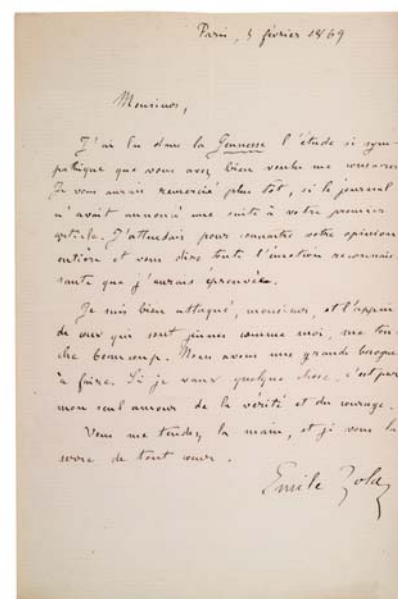 Paris, 5 février 1869
Monsieur,
J'ai lu dans la Jeunesse l'étude si sym-
pathique que vous avez bien voulu me consacrer
Je vous aurais remercié plus tôt, si le journal
n'avait annoncé une suite à votre premier
article. J'attendais pour connaître votre opinion
entière et vous dire toute l'émotion reconnais-
sante que j'aurais éprouvée.
Je suis bien attaqué, monsieur, et l'appui
de ceux qui sont jeunes comme moi, me tou-
che beaucoup. Nous avons une grande besogne
à faire. Si je vaux quelque chose, c'est par
mon seul amour de la vérité et du courage.
Vous me tendez la main, et je vous la
serre de tout cœur.
Emile Zola